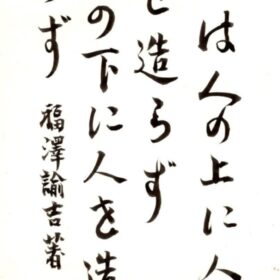 は人の上に人
を造らず
の下に人を造
らず
福澤諭吉著